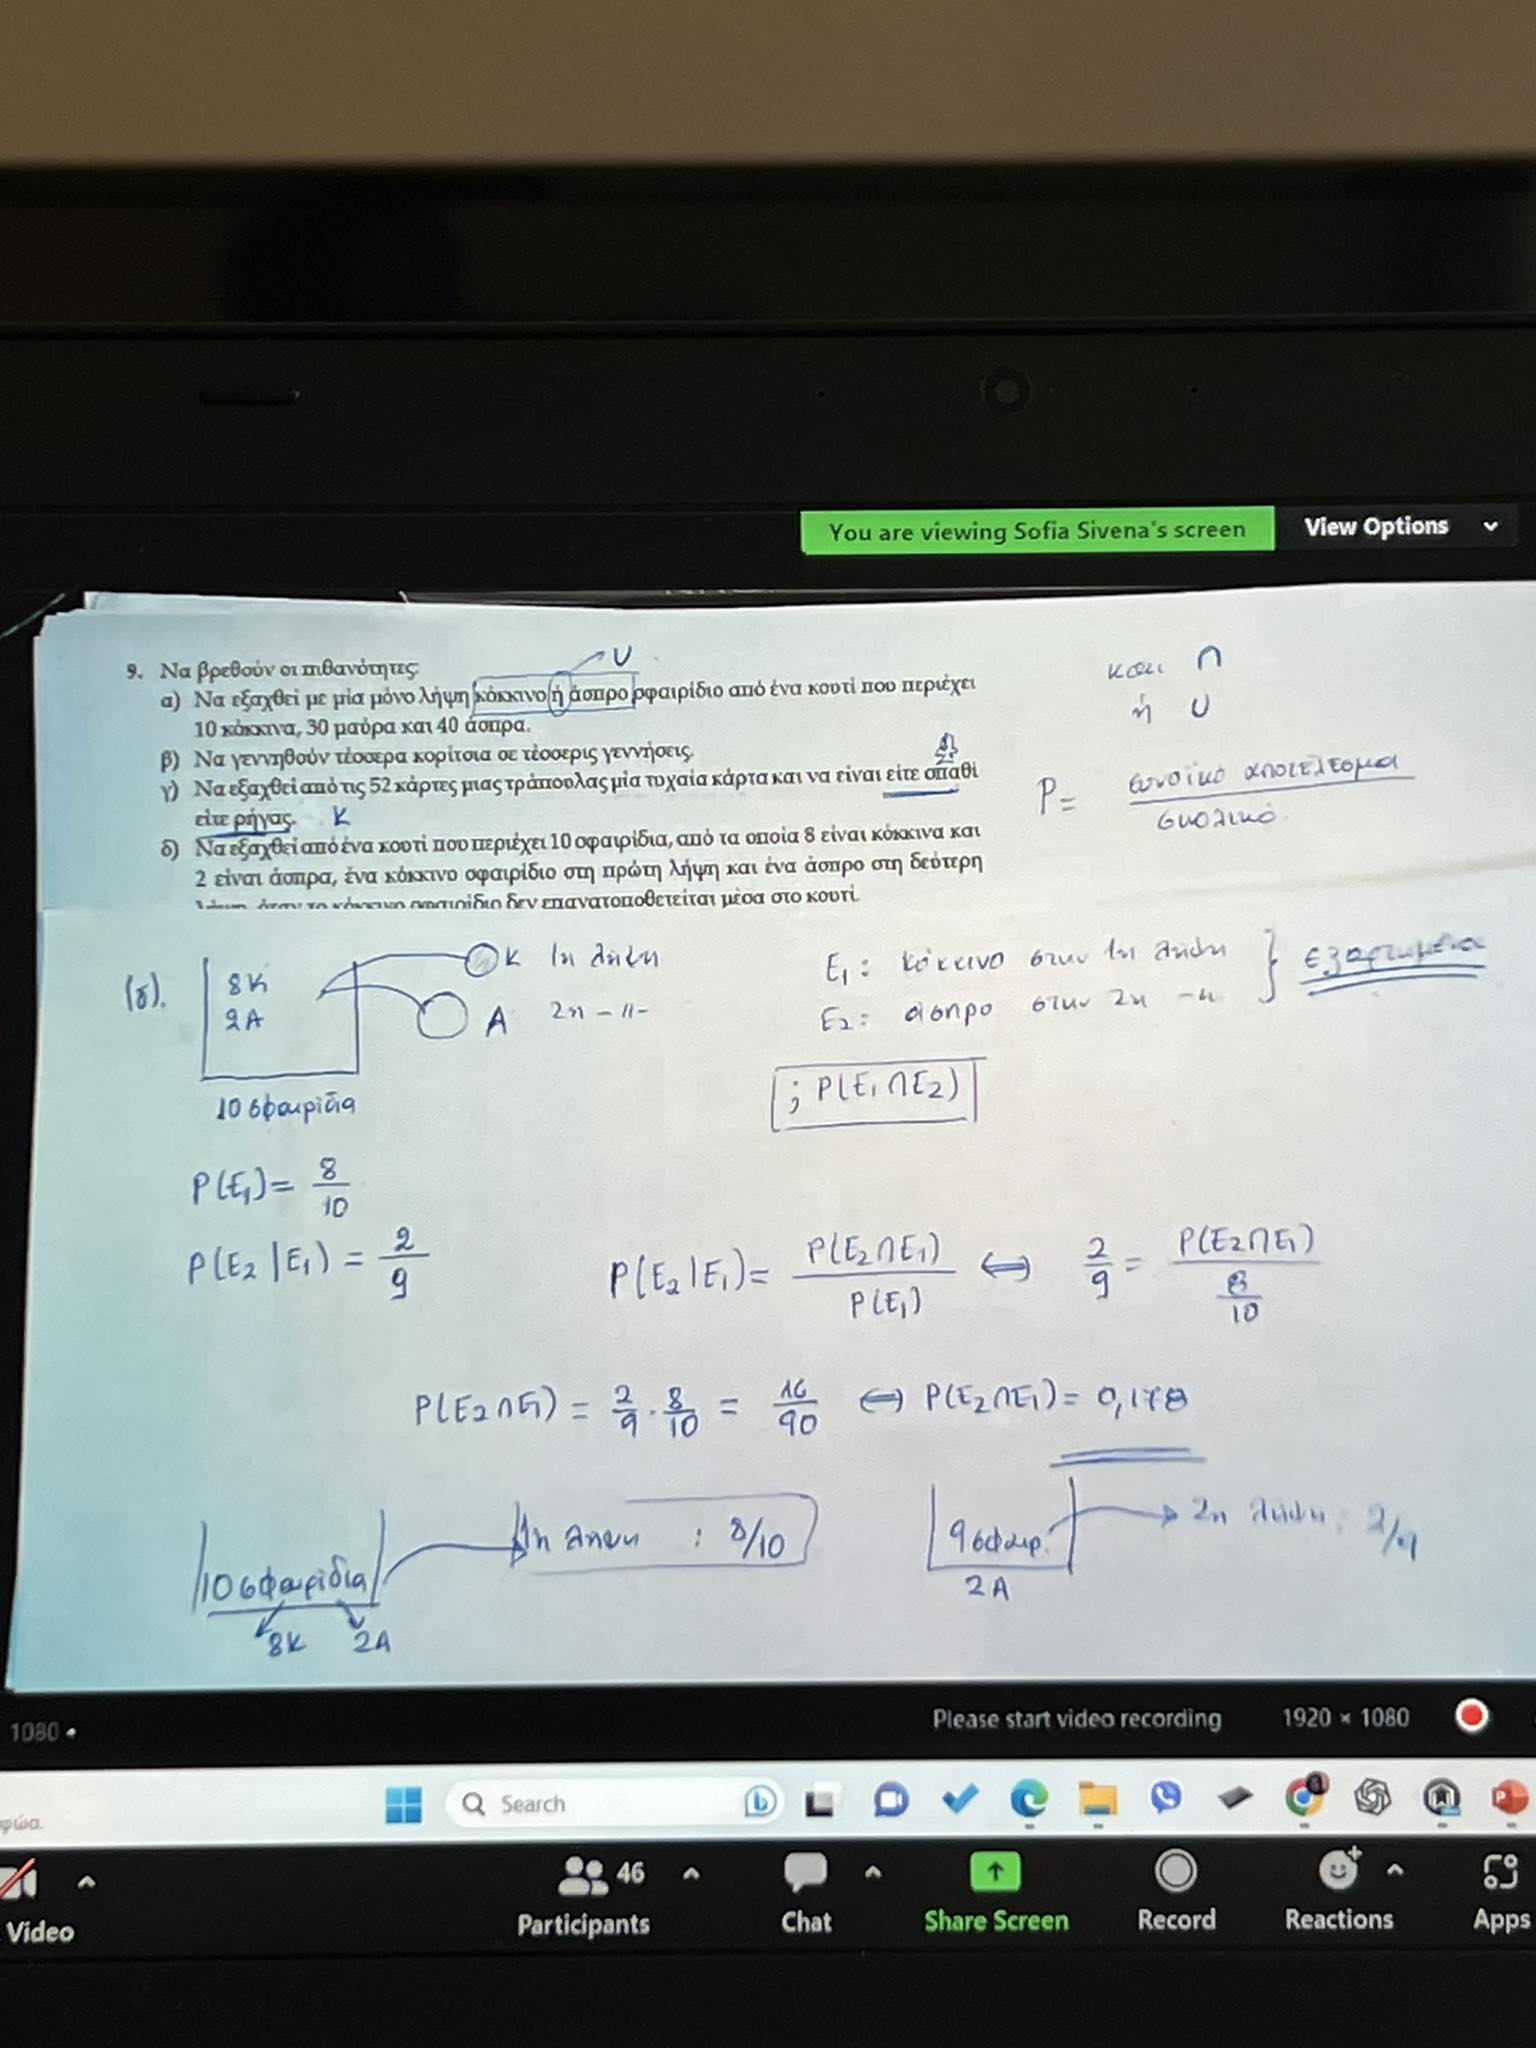 You are viewing Sofia Sivena's screen View Options
U
9. Να βρεθούν οι πιθανότητες:
α) Να εξαχθεί με μία μόνο λήψη κόκκινο ή άσπρο σφαιρίδιο από ένα κουτί που περιέχει
10 κόκκινα, 30 μαύρα και 40 άσπρα.
β) Να γεννηθούν τέσσερα κορίτσια σε τέσσερις γεννήσεις.
γ) Να εξαχθεί από τις 52 κάρτες μιας τράπουλας μία τυχαία κάρτα και να είναι είτε σπαθί
είτε ρήγας. K
δ) Να εξαχθεί από ένα κουτί που περιέχει 10 σφαιρίδια, από τα οποία 8 είναι κόκκινα και
2 είναι άσπρα, ένα κόκκινο σφαιρίδιο στη πρώτη λήψη και ένα άσπρο στη δεύτερη
λήψη, όταν το κόκκινο σφαιρίδιο δεν επανατοποθετείται μέσα στο κουτί.
και ∩
ή U
P = ευνοϊκό αποτέλεσμα / συνολικό
(δ). 8K
2A
K 1η λήψη
A 2η -//-
10 σφαιρίδια
E1: κόκκινο στην 1η λήψη
E2: άσπρο στην 2η -//-
} εξαρτημένα
; P(E1∩E2)
P(E1) = 8/10
P(E2|E1) = 2/9
P(E2|E1) = P(E2∩E1)/P(E1) ⟺ 2/9 = P(E2∩E1)/(8/10)
P(E2∩E1) = 2/9 · 8/10 = 16/90 ⟺ P(E2∩E1) = 0,178
10 σφαιρίδια 1η λήψη : 8/10
8K 2A
9 σφαιρ. 2η λήψη : 2/9
2A
1080
Please start video recording 1920 × 1080
Search
φώα.
Video
46
Participants Chat Share Screen Record Reactions Apps